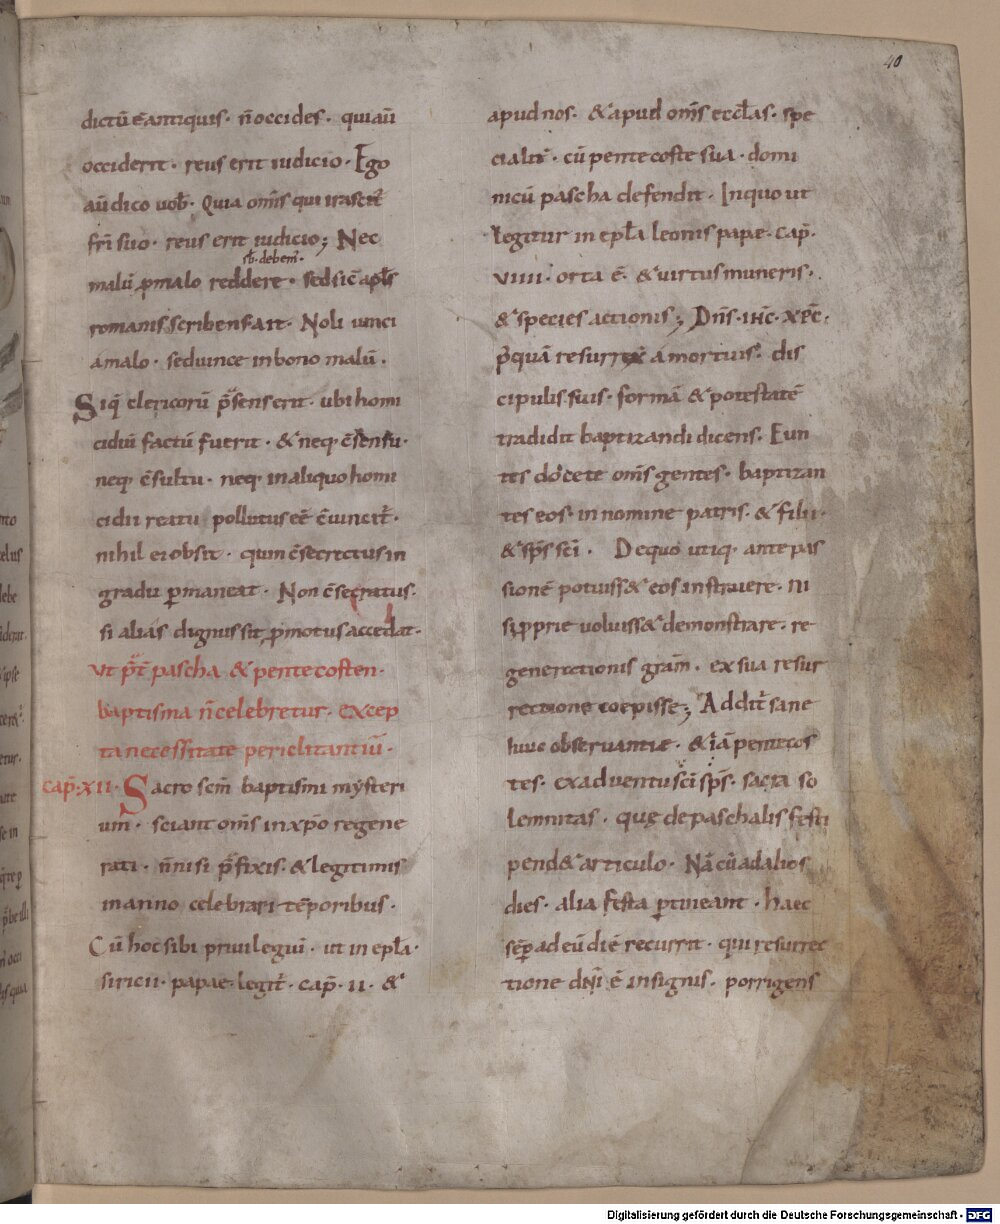 40
dictū ē antiquis· n̄ occides· qui aū
occiderit· reus erit iudicio· Ego
aū dico uob̄· Quia om̄is qui irascit̄
fr̄i suo· reus erit iudicio; Nec
sb̄· debem̄·
malū ꝓ malo reddere· sed sic̄ apl̄s
romanis scribens ait· Noli uinci
a malo· sed uince in bono malū·
Siq̄ clericorū p̄sens erit· ubi homi
cidiū factū fuerit· & neq· c̄sensu·
neq· c̄sultu· neq· in aliquo homi
cidii reatu pollutus eē c̄uincit̄·
nihil ei obsit· quin c̄secratus in
gradu ꝑmaneat· Non c̄secratus·
si alias dignus sit ꝓmotus accedat·
Ut p̄t̄ pascha & pentecosten·
baptisma n̄ celebretur· excep
ta necessitate periclitantiū·
cap̄·XII· Sacro scm̄ baptismi mysteri
um· sciant om̄s in xp̄o regene
rati· n̄ nisi p̄fixis· & legitimis
in anno celebrari tēporibus·
Cū hoc sibi priuilegiū· ut in epl̄a·
siricii· papae· legit̄· cap̄· II· &
apud nos· & apud om̄s eccl̄as· spe
cialit̄· cū pentecoste sua· domi
nicū pascha defendit· In quo ut
legitur in epl̄a leonis papæ· cap̄·
VIIII· orta ē· & uirtus muneris·
& species actionis; Dn̄s· ihc̄· xpc̄·
p̄quā resurrex̄ a mortuis· dis
cipulis suis· formā & potestatē
tradidit baptizandi dicens· Eun
tes docete om̄s gentes· baptizan
tes eos· in nomine patris· & filii·
& sp̄s sc̄i· De quo utiq· ante pas
sionē potuiss& eos instruere· ni
si ꝓprie uoluiss& demonstrare· re
generationis grām· ex sua resur
rectione coepisse; Addit̄ sane
huic obseruantie· & iā pentecos
tes· ex aduentu sc̄i sp̄s· sacra so
lemnitas· quę de paschalis festi
pend& articulo· Nā cū ad alios
dies· alia festa ꝑtineant· haec
sēꝑ ad eū diē recurrit· qui resurrec
tione dn̄i ē insignis· porrigens
Digitalisierung gefördert durch die Deutsche Forschungsgemeinschaft - DFG